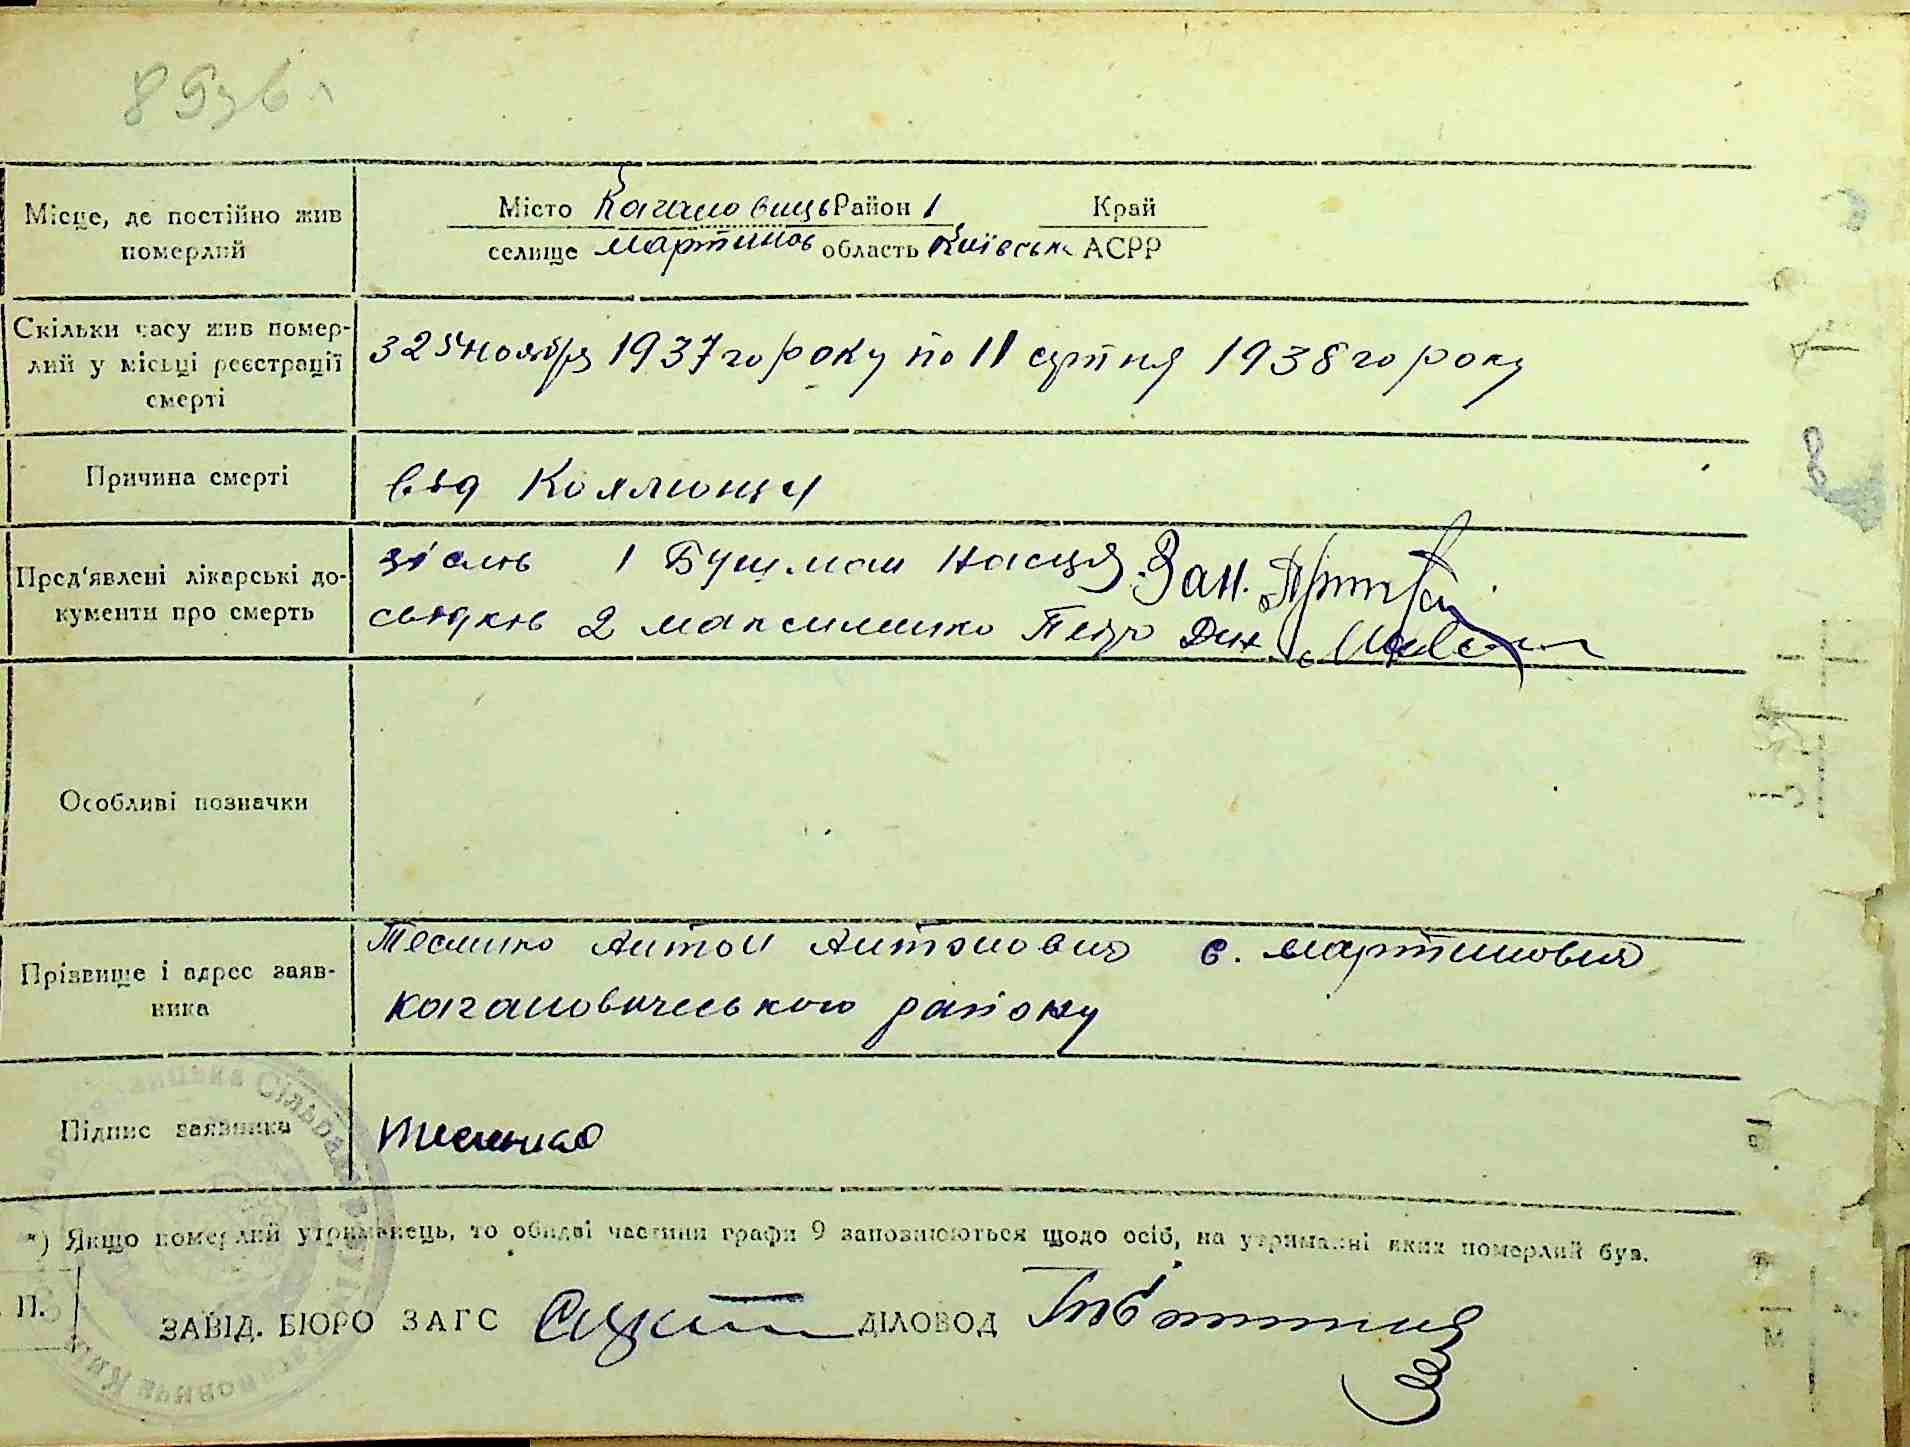 Місце, де постійно жив
померлий
Місто Кагановиць Район 1 Край
селище Мартинов область Київськ АСРР
Скільки часу жив помер-
лий у місці реєстрації
смерті
З 25 ноября 1937 го року по 11 серпня 1938 го року
Причина смерті
від Коклюшу
Пред'явлені лікарські до-
кументи про смерть
1 Бушман Настя Зан.
свідків 2 Максименко Петро
Особливі позначки
Прізвище і адрес заяв-
ника
Тесленко Антон Антонович с. Мартиновичі
Кагановичського району
Підпис заявника
Тесленко
*) Якщо померлий утриманець, то обидві частини графи 9 заповнюються щодо осіб, на утриманні яких померлий був.
П.
ЗАВІД. БЮРО ЗАГС ДІЛОВОД